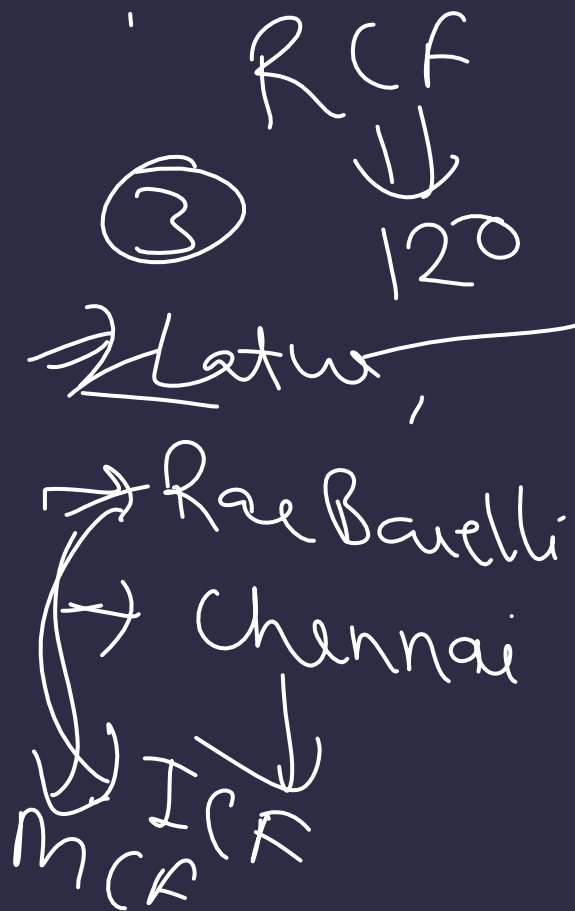 RCF
③
120
Latur
Rae Barelli
Chennai
ICF
MCF